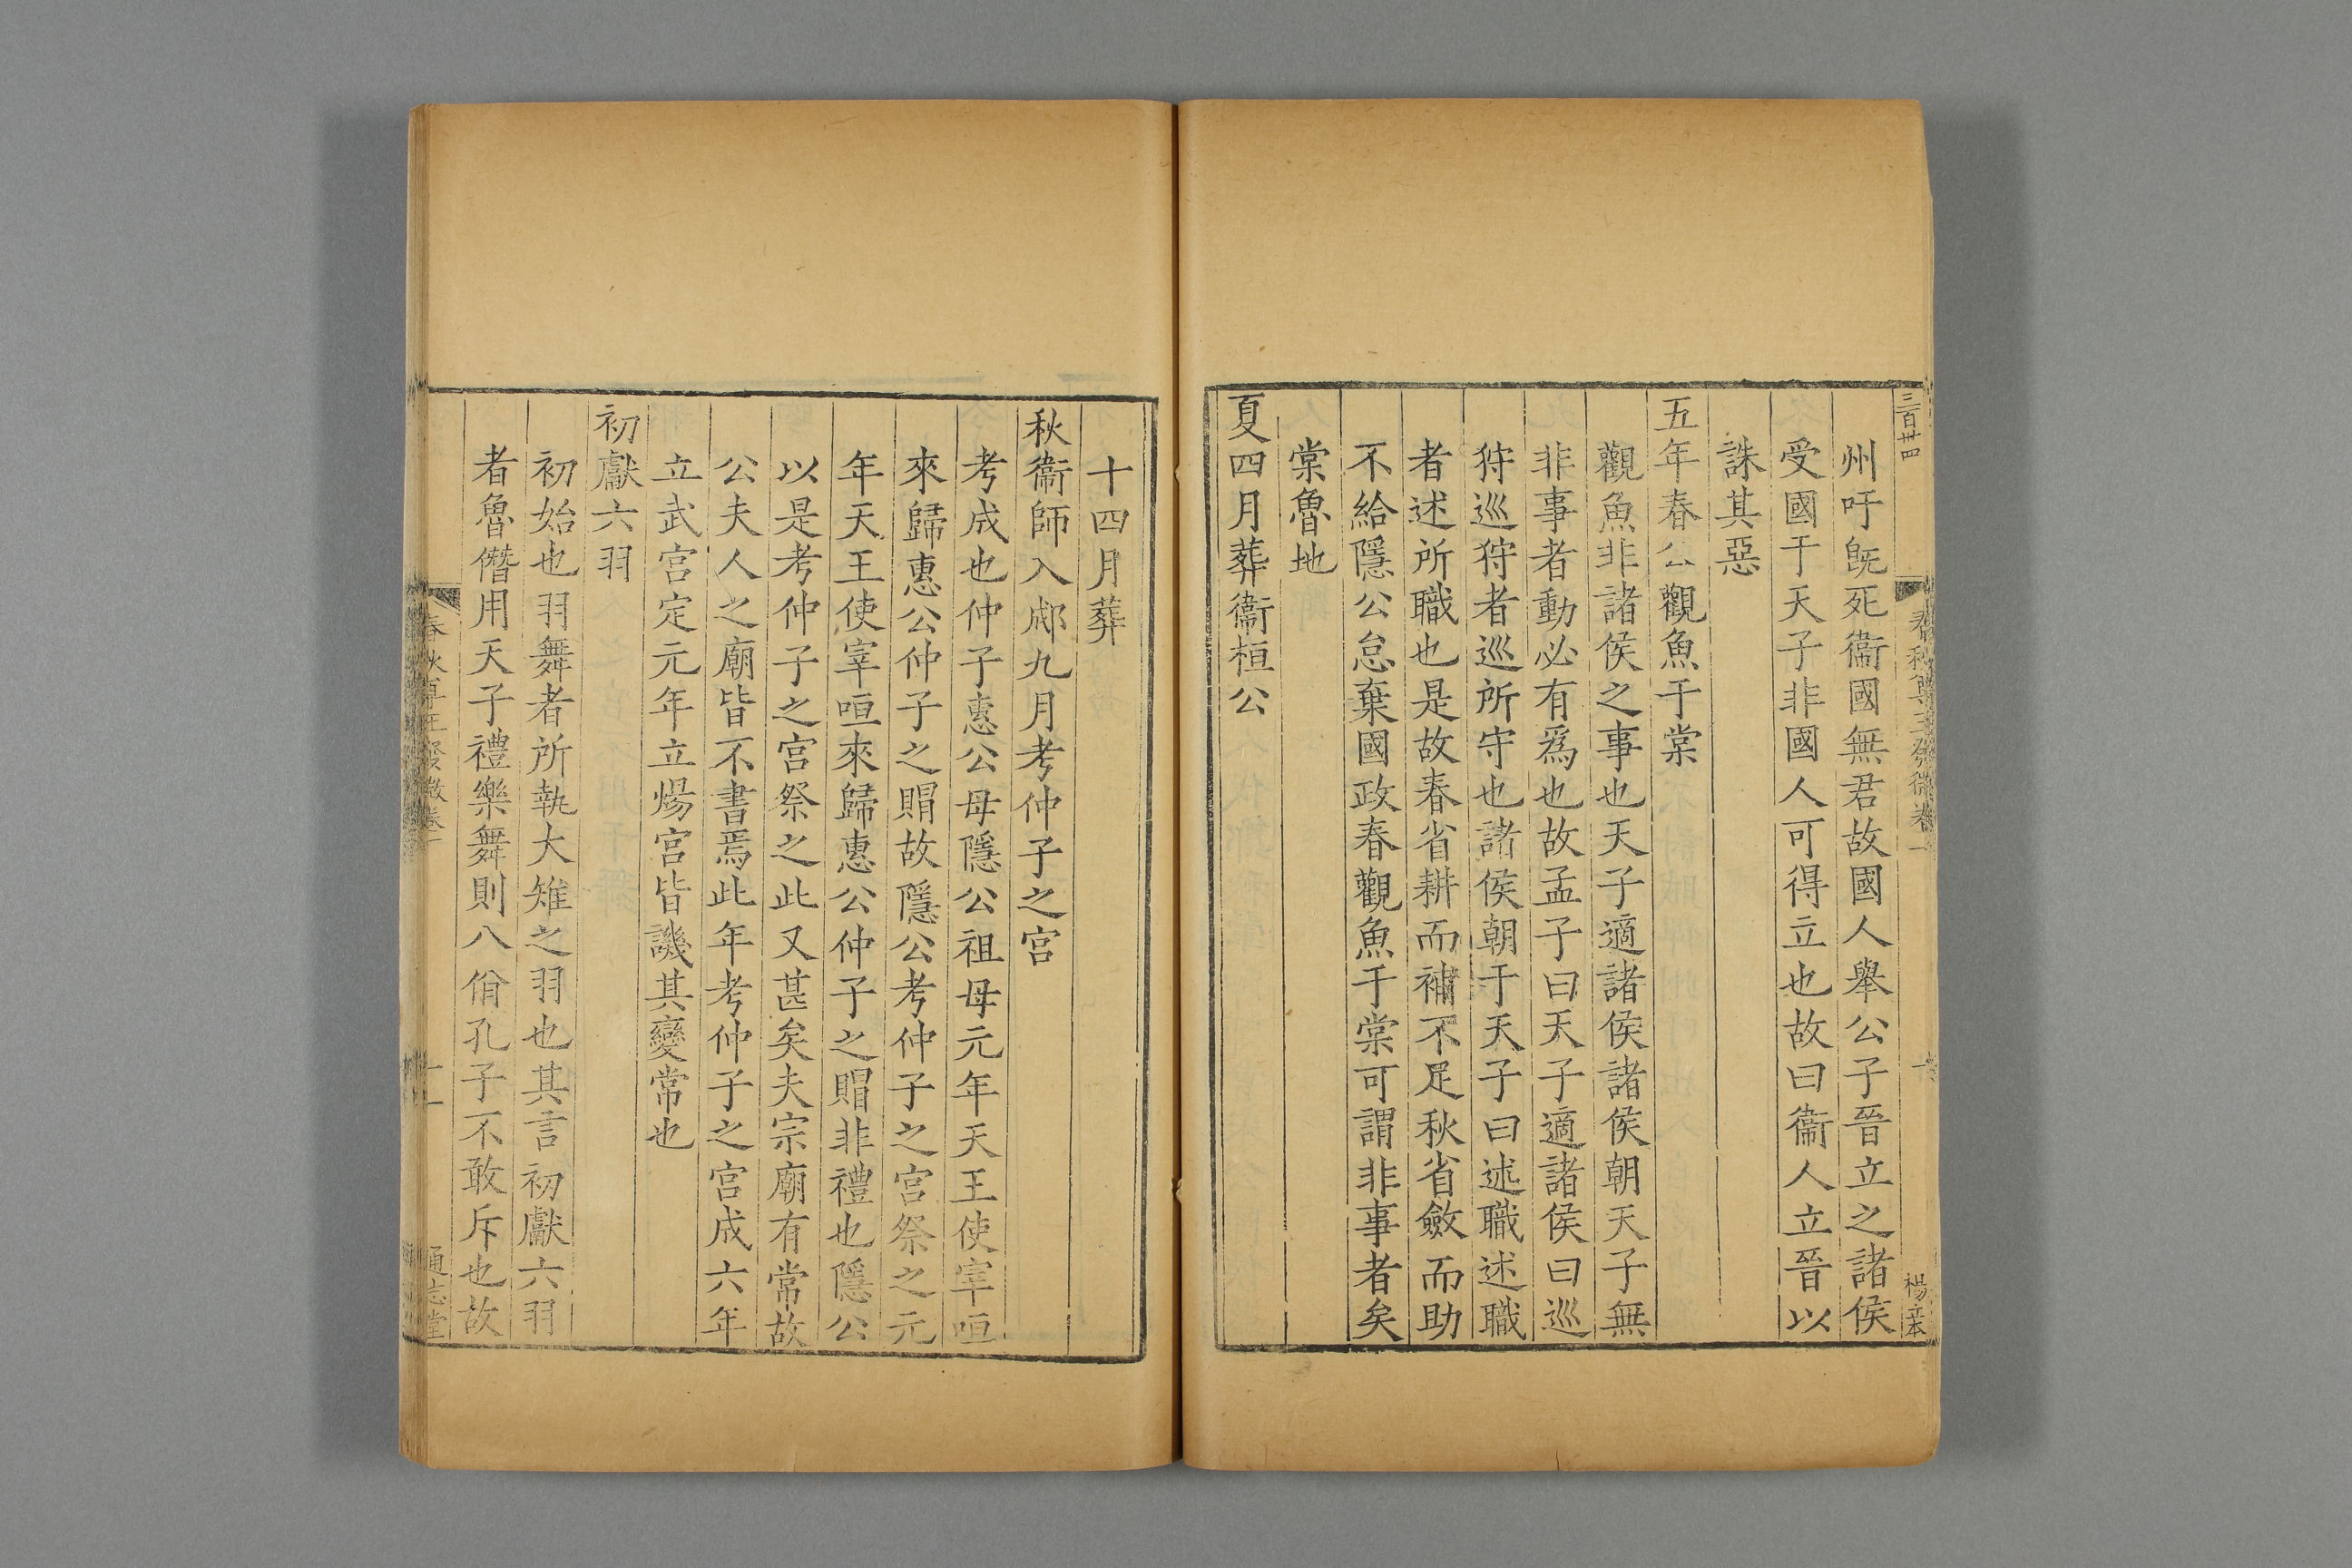 三百卅四
春秋尊王發微卷一
十
楊本
州吁旣死衞國無君故國人舉公子晉立之諸侯
受國于天子非國人可得立也故曰衞人立晉以
誅其惡
五年春公觀魚于棠
觀魚非諸侯之事也天子適諸侯諸侯朝天子無
非事者動必有爲也故孟子曰天子適諸侯曰巡
狩巡狩者巡所守也諸侯朝于天子曰述職述職
者述所職也是故春省耕而補不足秋省斂而助
不給隱公怠棄國政春觀魚于棠可謂非事者矣
棠魯地
夏四月葬衞桓公
十四月葬
秋衞師入郕九月考仲子之宮
考成也仲子惠公母隱公祖母元年天王使宰咺
來歸惠公仲子之賵故隱公考仲子之宮祭之元
年天王使宰咺來歸惠公仲子之賵非禮也隱公
以是考仲子之宮祭之此又甚矣夫宗廟有常故
公夫人之廟皆不書焉此年考仲子之宮成六年
立武宮定元年立煬宮皆譏其變常也
初獻六羽
初始也羽舞者所執大雉之羽也其言初獻六羽
者魯僭用天子禮樂舞則八佾孔子不敢斥也故
春秋尊王發微卷一
十一
通志堂